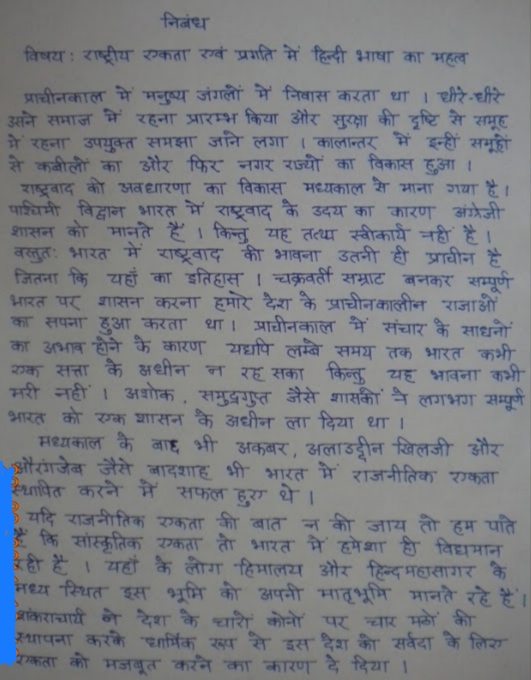 निबंध
विषय : राष्ट्रीय एकता एवं प्रगति में हिन्दी भाषा का महत्व
प्राचीनकाल में मनुष्य जंगलों में निवास करता था । धीरे-धीरे
उसने समाज में रहना प्रारम्भ किया और सुरक्षा की दृष्टि से समूह
में रहना उपयुक्त समझा जाने लगा । कालान्तर में इन्हीं समूहों
से कबीलों का और फिर नगर राज्यों का विकास हुआ ।
राष्ट्रवाद की अवधारणा का विकास मध्यकाल से माना गया है ।
पाश्चिमी विद्वान भारत में राष्ट्रवाद के उदय का कारण अंग्रेजी
शासन को मानते हैं । किन्तु यह तथ्य स्वीकार्य नहीं है ।
वस्तुतः भारत में राष्ट्रवाद की भावना उतनी ही प्राचीन है
जितना कि यहाँ का इतिहास । चक्रवर्ती सम्राट बनकर सम्पूर्ण
भारत पर शासन करना हमारे देश के प्राचीनकालीन राजाओं
का सपना हुआ करता था । प्राचीनकाल में संचार के साधनों
का अभाव होने के कारण यद्यपि लम्बे समय तक भारत कभी
एक सत्ता के अधीन न रह सका किन्तु यह भावना कभी
मरी नहीं । अशोक , समुद्रगुप्त जैसे शासकों ने लगभग सम्पूर्ण
भारत को एक शासन के अधीन ला दिया था ।
मध्यकाल के बाद भी अकबर, अलाउद्दीन खिलजी और
औरंगजेब जैसे बादशाह भी भारत में राजनीतिक एकता
स्थापित करने में सफल हुए थे ।
यदि राजनीतिक एकता की बात न की जाय तो हम पाते
हैं कि सांस्कृतिक एकता तो भारत में हमेशा ही विद्यमान
रही है । यहाँ के लोग हिमालय और हिन्दमहासागर के
मध्य स्थित इस भूमि को अपनी मातृभूमि मानते रहे हैं ।
शंकराचार्य ने देश के चारों कोनों पर चार मठों की
स्थापना करके धार्मिक रूप से इस देश की सर्वदा के लिए
एकता को मजबूत करने का कारण दे दिया ।